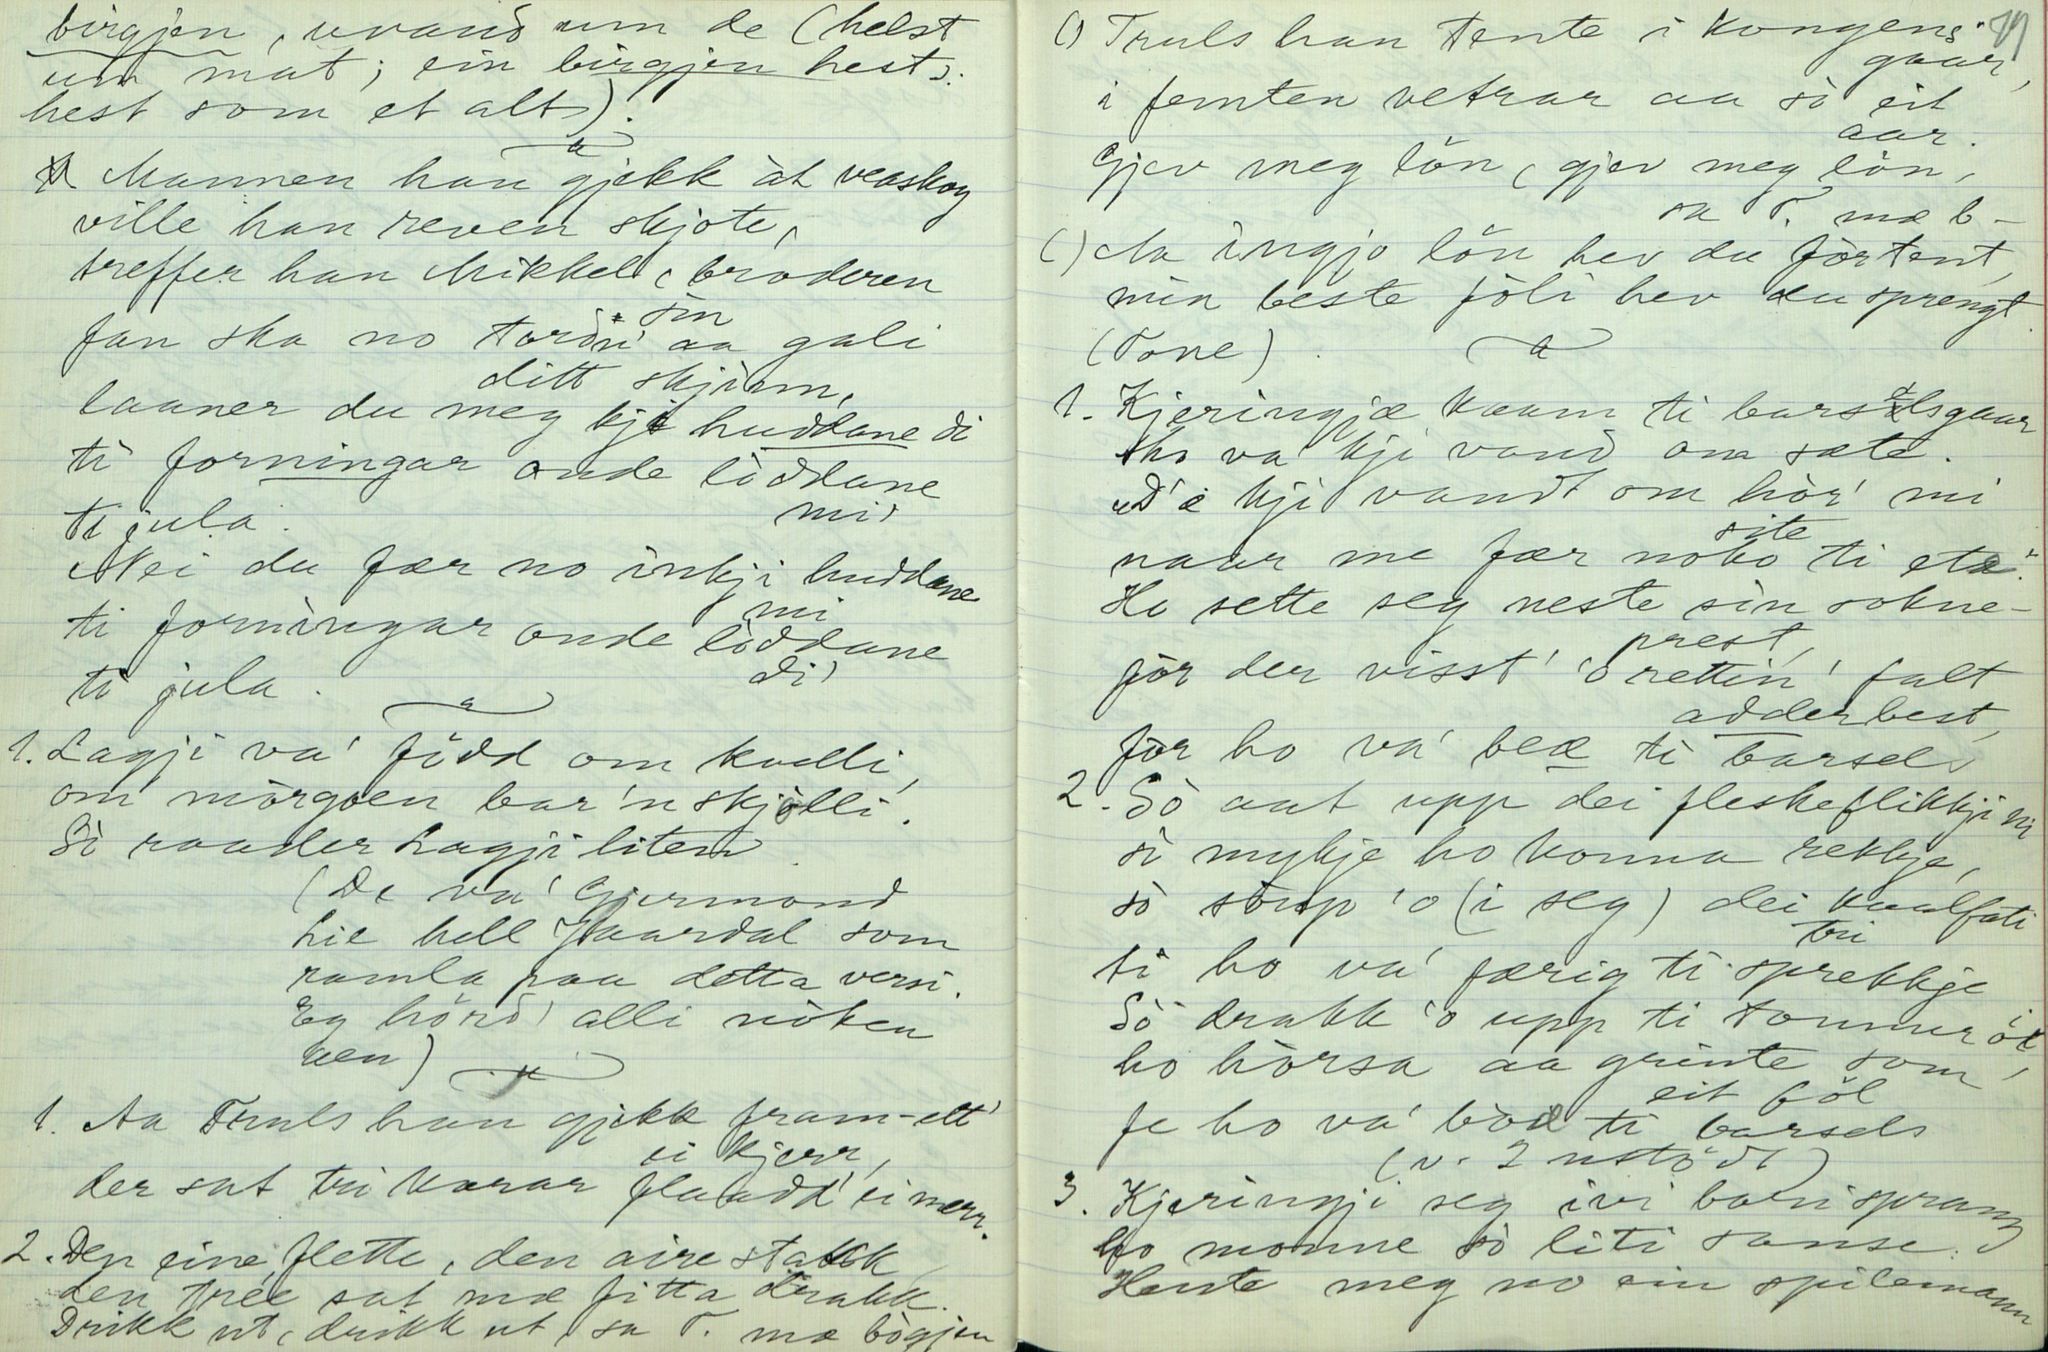 birgjen, uvand um de (helst
um mat; ein birgjen hest:
hest som et alt).
Mannen han gjekk åt veaskog
ville han reven skjote,
treffer han Mikkel, broderen
sin
fan ska no aa gali
ditt skjinn,
laaner du meg kji huddane di
ti forningar onde löddane
mi
ti jula.
Nei du fær no inkji huddane
mi
ti forningar onde löddane
di
ti jula.
1. Lagji va' född om kvelli,
om mòrgoen bar 'n skjölli.
Sò raader Lagji liten
(De va' Gjermond
Lie hell Haardal som
ramla paa detta versi.
Eg hörd' alli nòken
aen)
1. Aa Truls han gjekk fram-ett'
ei kjerr,
der sat tri karar flaadd' ei merr.
2. Den eine flette, den aire stakk,
den tree sat mæ fitta drakk.
Drikk ut, drikk ut, sa T. mæ bògjen
79
() Truls han tente i kongens
gaar,
i femten vetrar aa sò eit
aar.
Gjev meg lön, gjev meg lön,
sa T. mæ b-
() Aa ingjo lön hev du fòrtent,
min beste föli hev du sprengt.
(Tone)
1. Kjeringjæ kaam ti barselsgaar
ho va' kji vand om sæte.
"D'æ kji vandt om hòr' mi
site
naar me fær noko ti eta."
Ho sette seg neste sin sokne-
prest,
fòr der visst' 'o rettin' falt
adderbest,
fòr ho va' beæ ti barsels
2. Sò aat upp dei fleskeflikkji ni
sò mykje ho konna rekkje,
sò söup 'o (i seg) dei kaalfati
tri
ti ho va' færig ti sprekkje
Sò drakk 'o upp ti tonnur öl,
ho hòrsa aa grinte som
eit föl
fe ho va' bòe ti barsels
(v. 2 ustödt)
3. Kjeringji seg ivi bori sprang
ho monne sò liti sanse.
Hente meg no ein spilemann